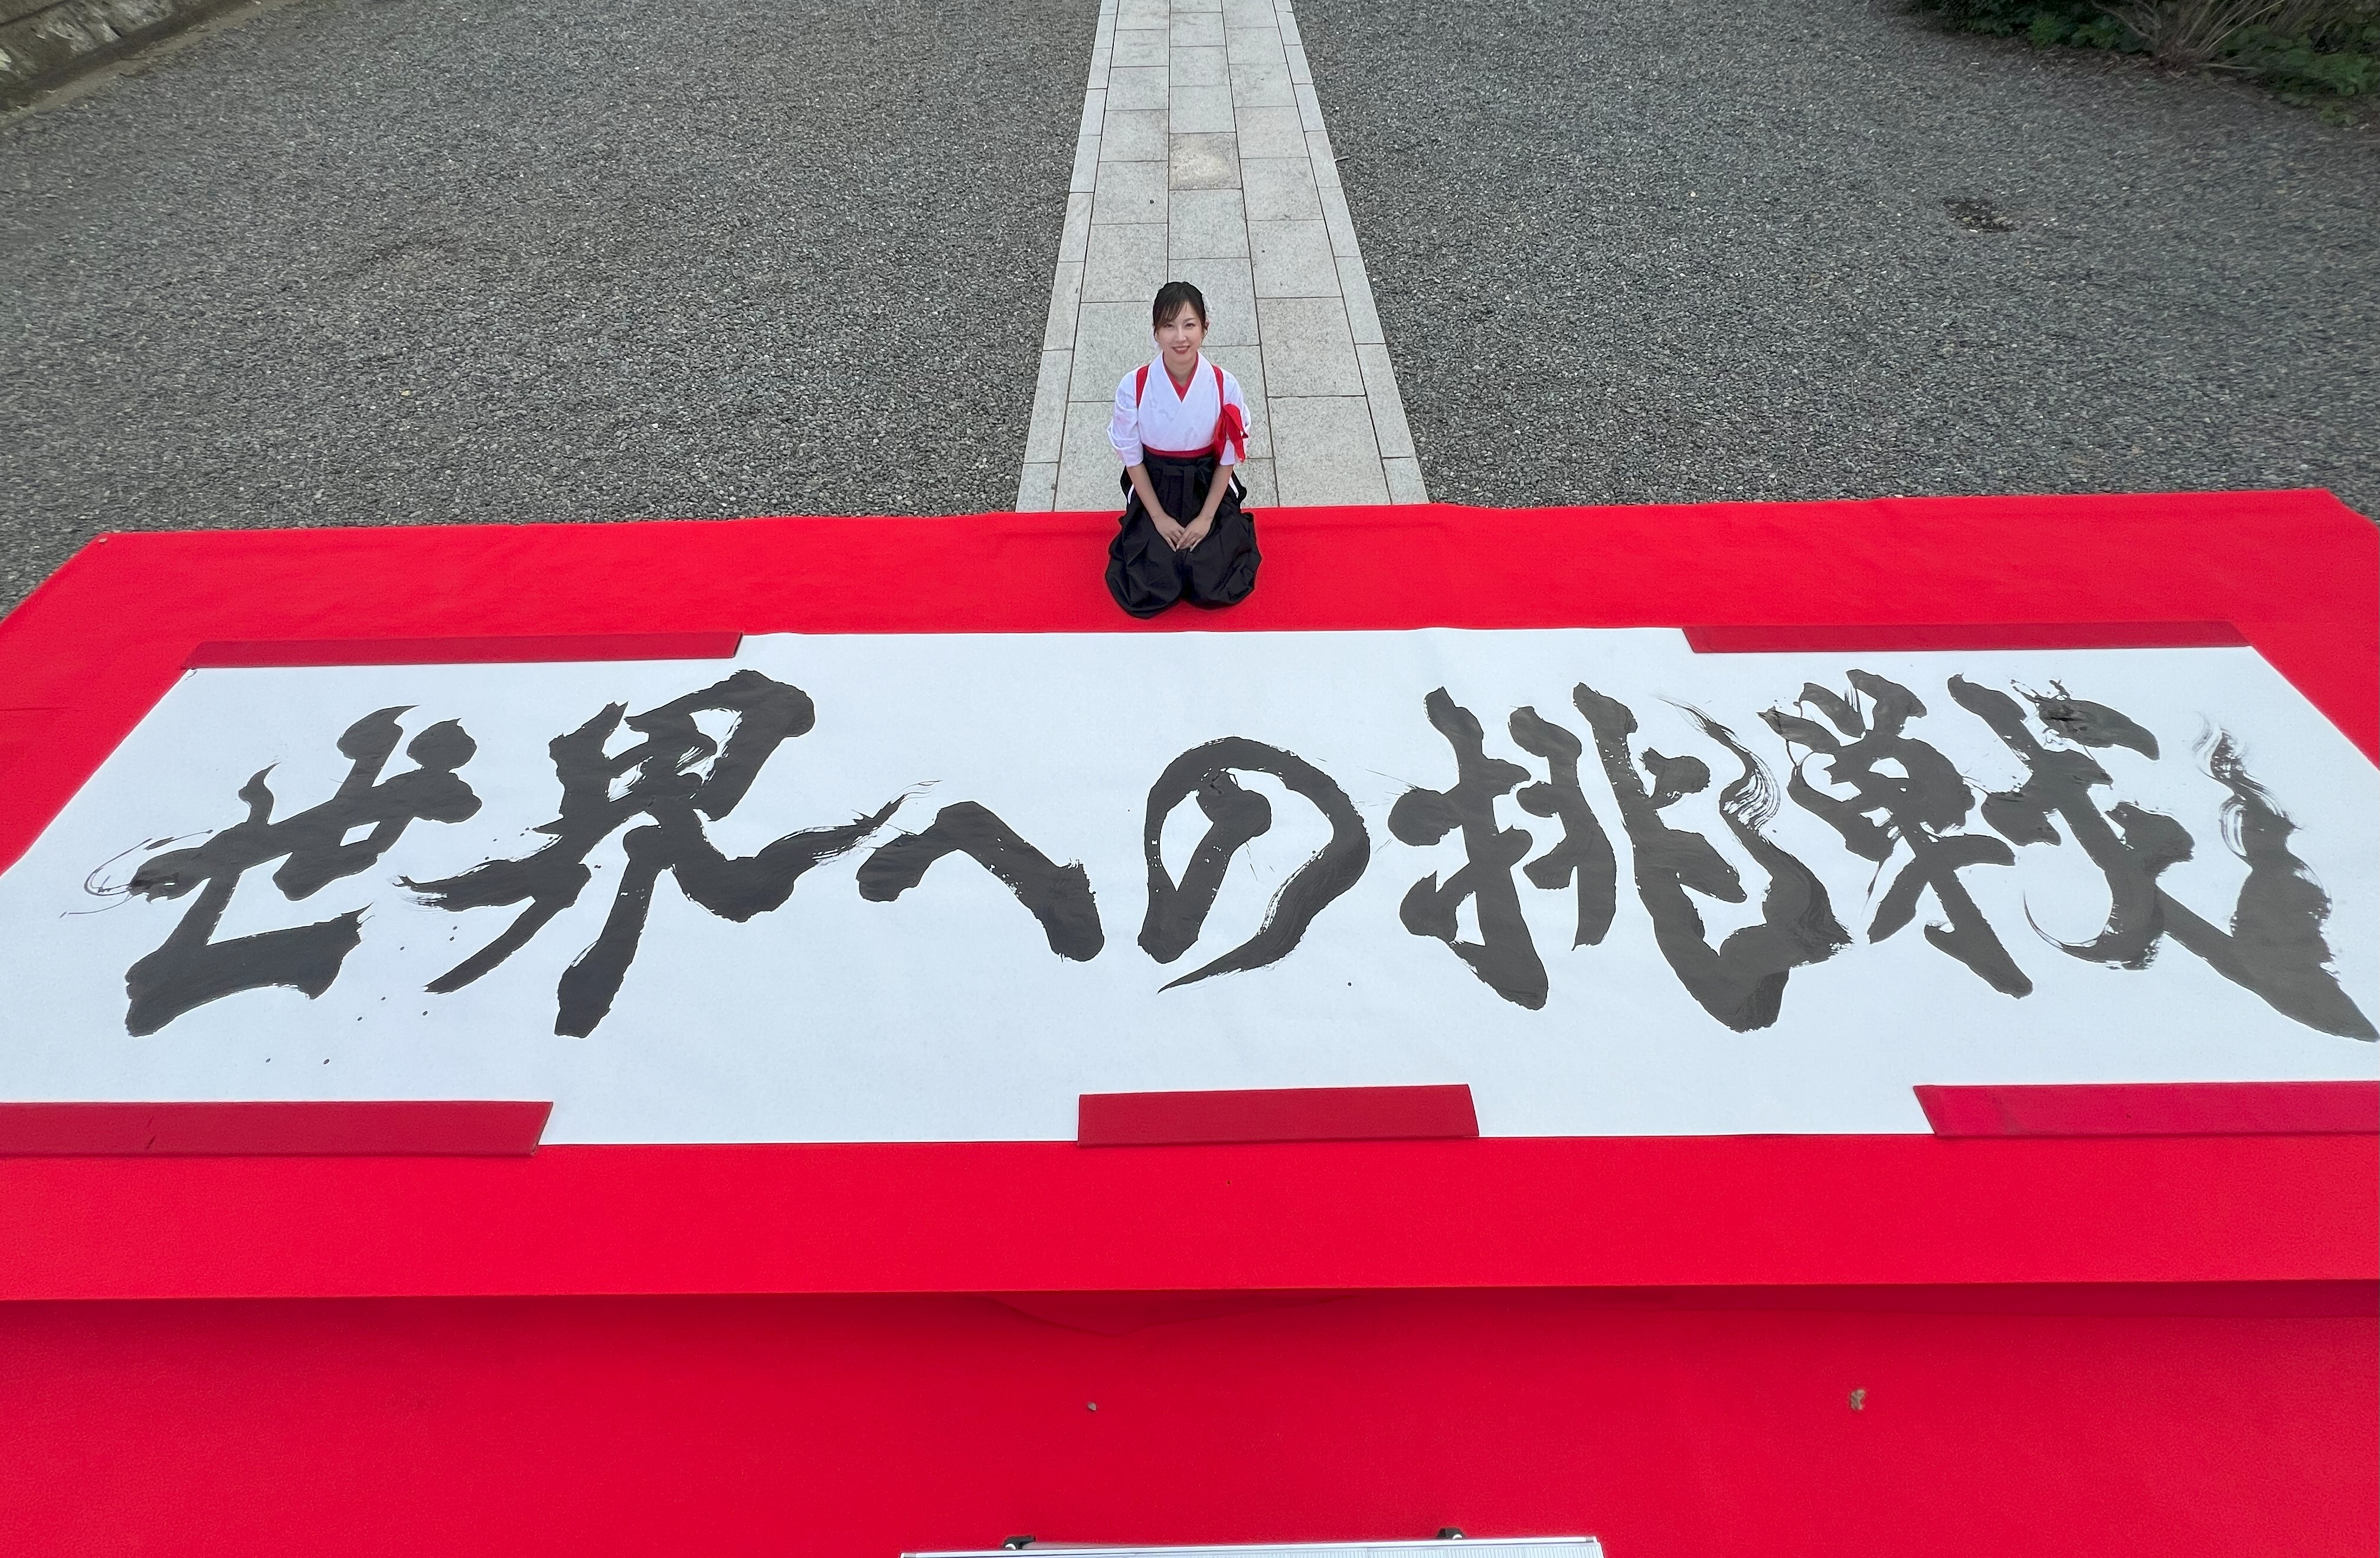 世界への挑戦